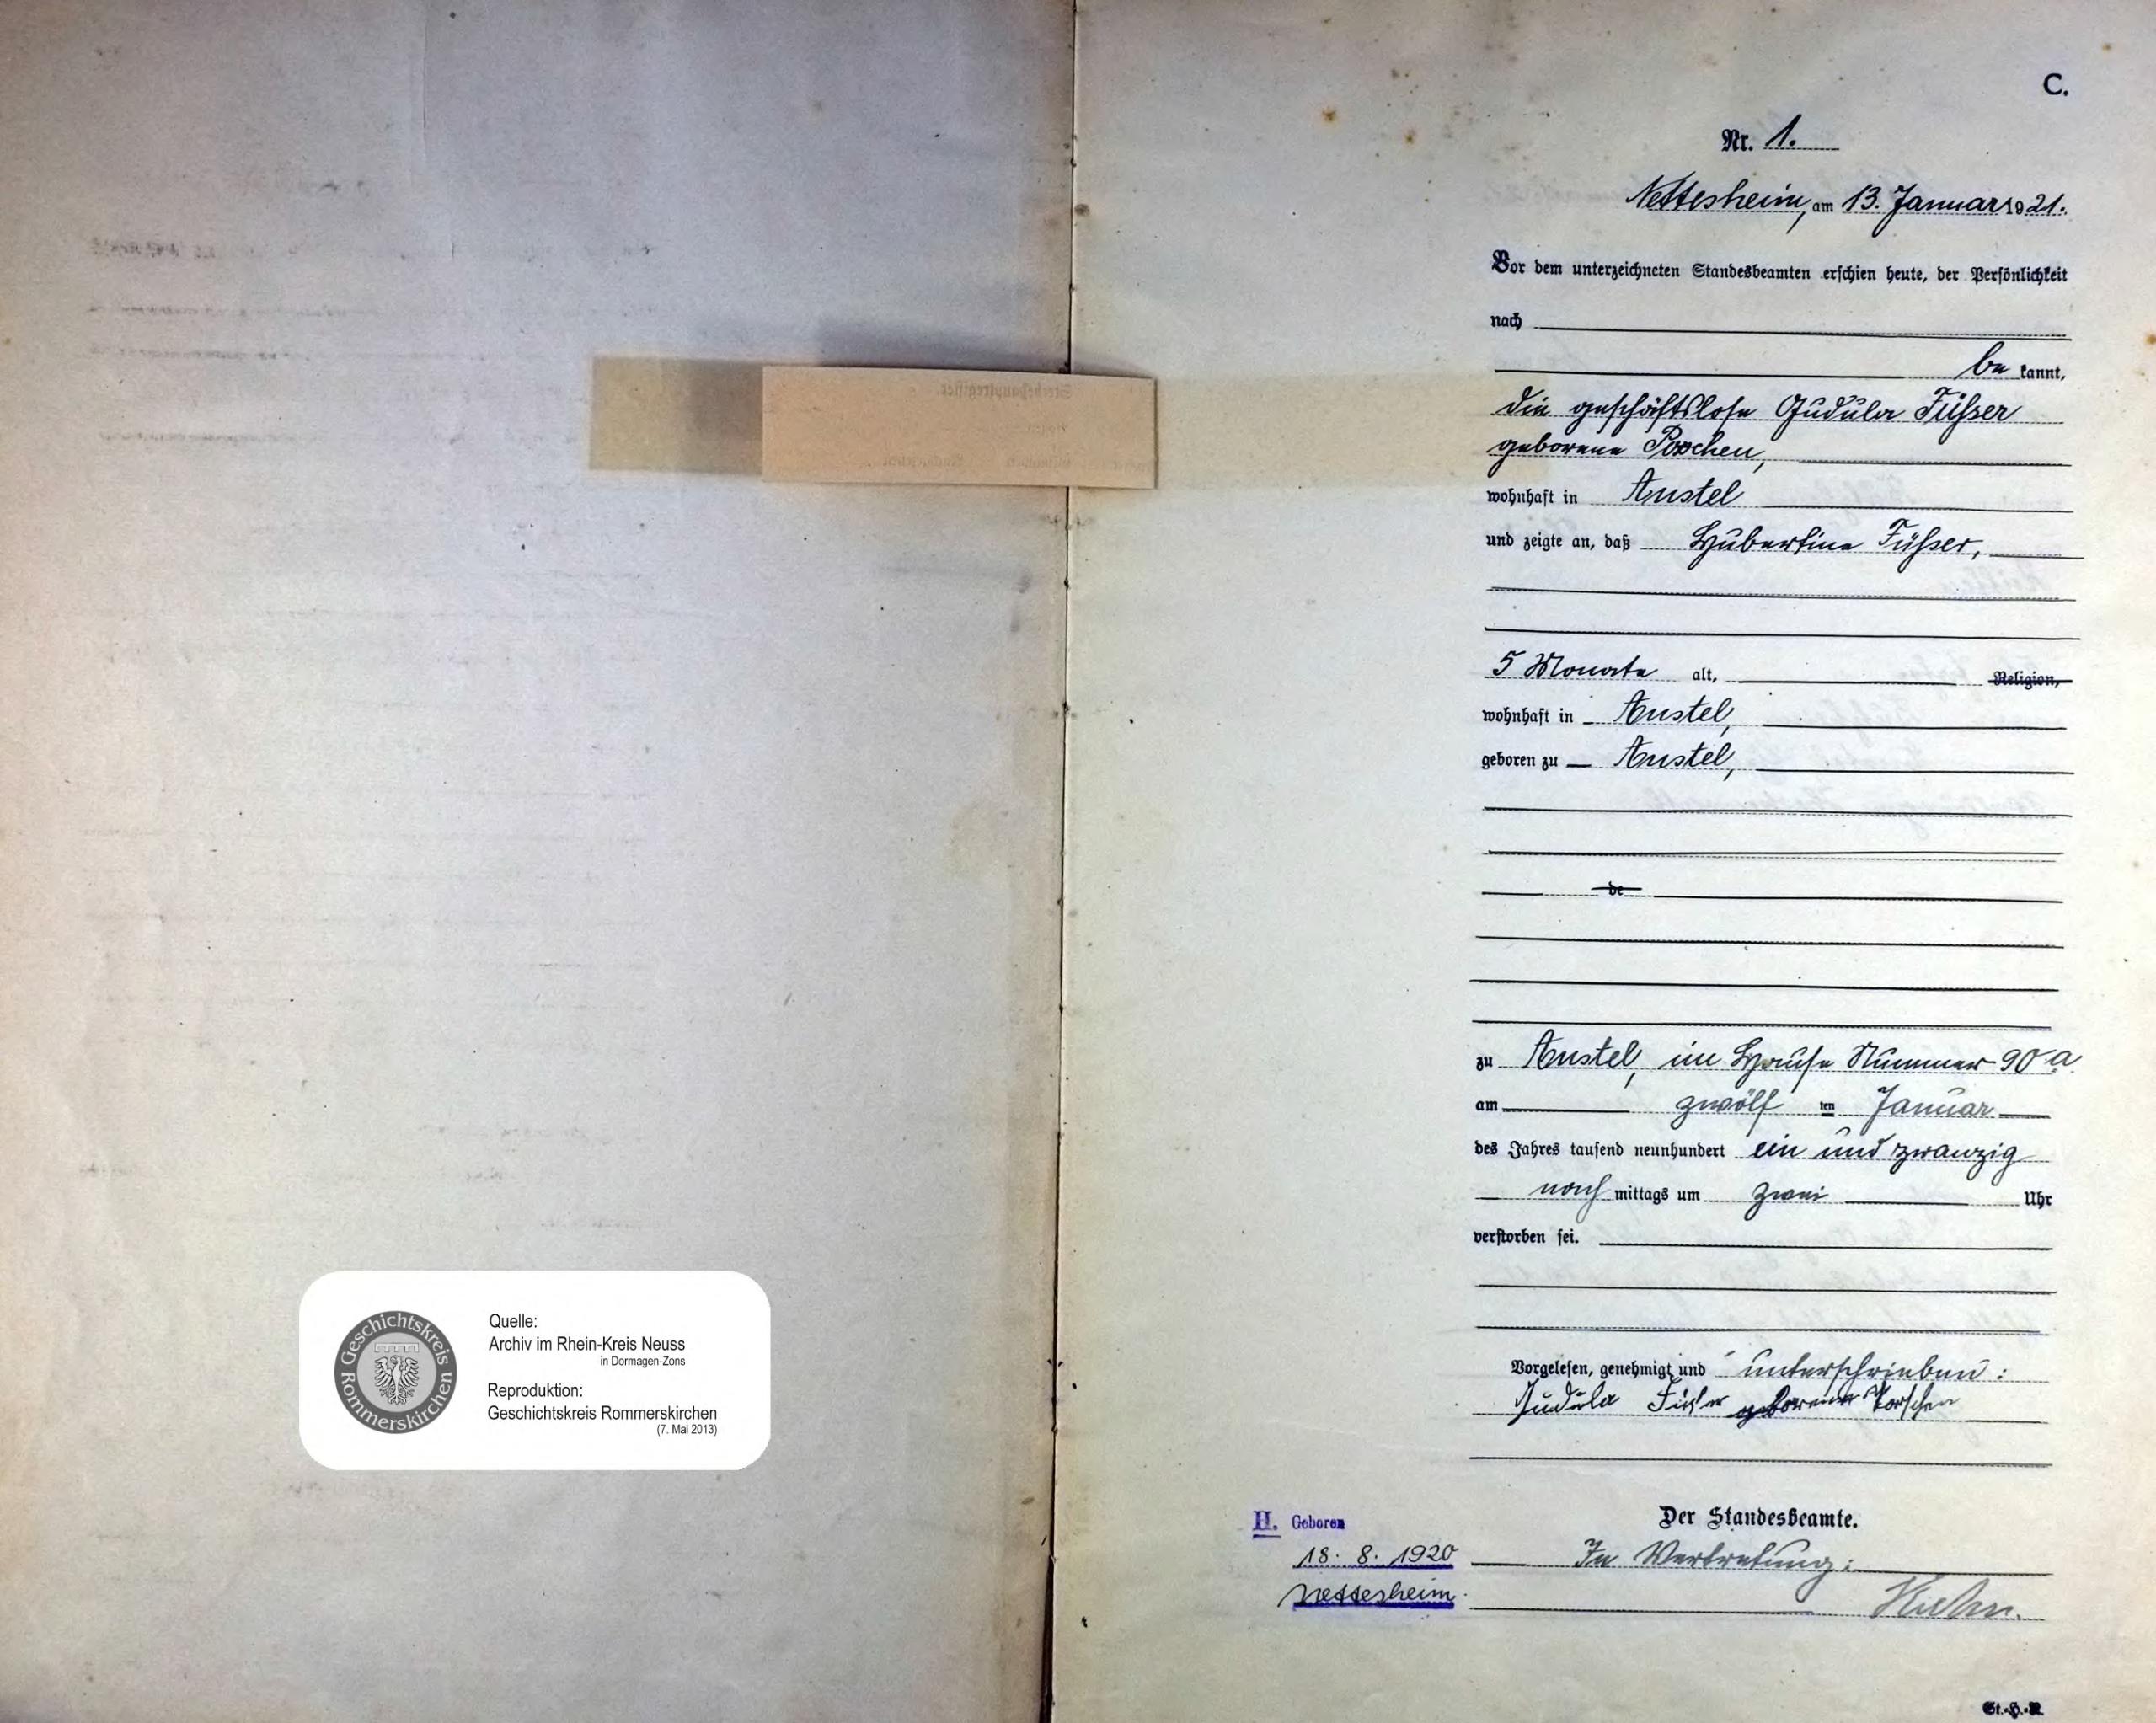 C.
Nr. 1.
Nettesheim, am 13. Januar 1921.
Vor dem unterzeichneten Standesbeamten erschien heute, der Persönlichkeit
nach
be kannt,
die geschäftslose Gudula Füßer
geborene Porschen,
wohnhaft in Anstel
und zeigte an, daß Hubertine Füßer,
5 Monate alt, Religion,
wohnhaft in Anstel,
geboren zu Anstel,
de
zu Anstel, im Hause Nummer 90 a
am zwölf ten Januar
des Jahres tausend neunhundert ein und zwanzig
nach mittags um zwei Uhr
verstorben sei.
Vorgelesen, genehmigt und unterschrieben:
Gudula Füßer geborene Porschen
Der Standesbeamte.
In Vertretung:
H. Geboren
18. 8. 1920
Nettesheim.
St.-H.-R.
Geschichtskreis Rommerskirchen
Quelle:
Archiv im Rhein-Kreis Neuss
in Dormagen-Zons
Reproduktion:
Geschichtskreis Rommerskirchen
(7. Mai 2013)